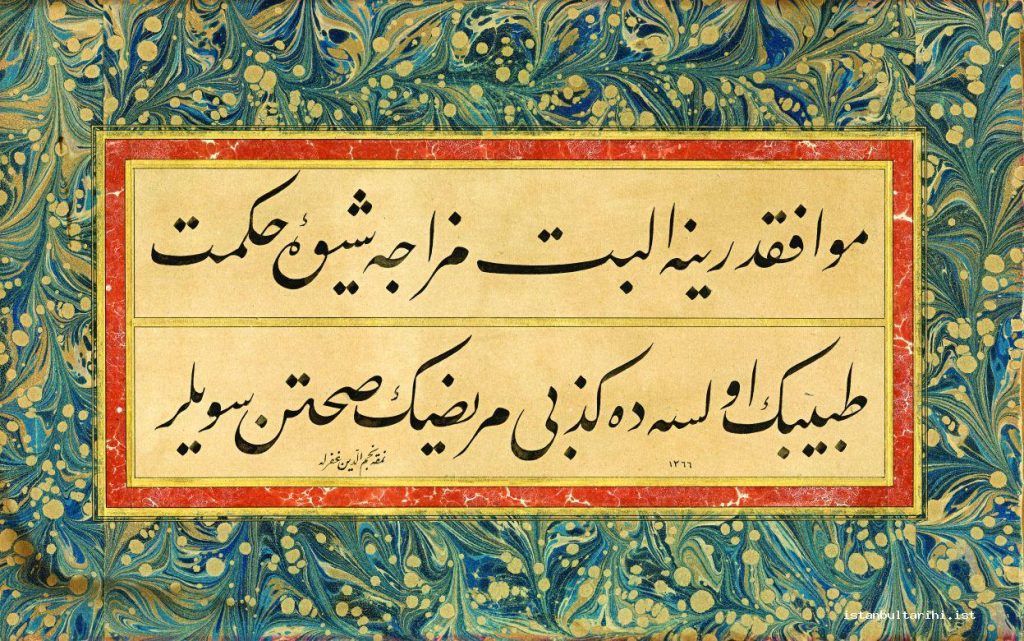 موافقدر ینه البت مزاجه شیوهٔ حکمت
طبیبک اولسه ده کذبی مریضک صحتن سویلر
نمقه نجم الدین غفرله
١٢٦٦
istanbultarihi.ist